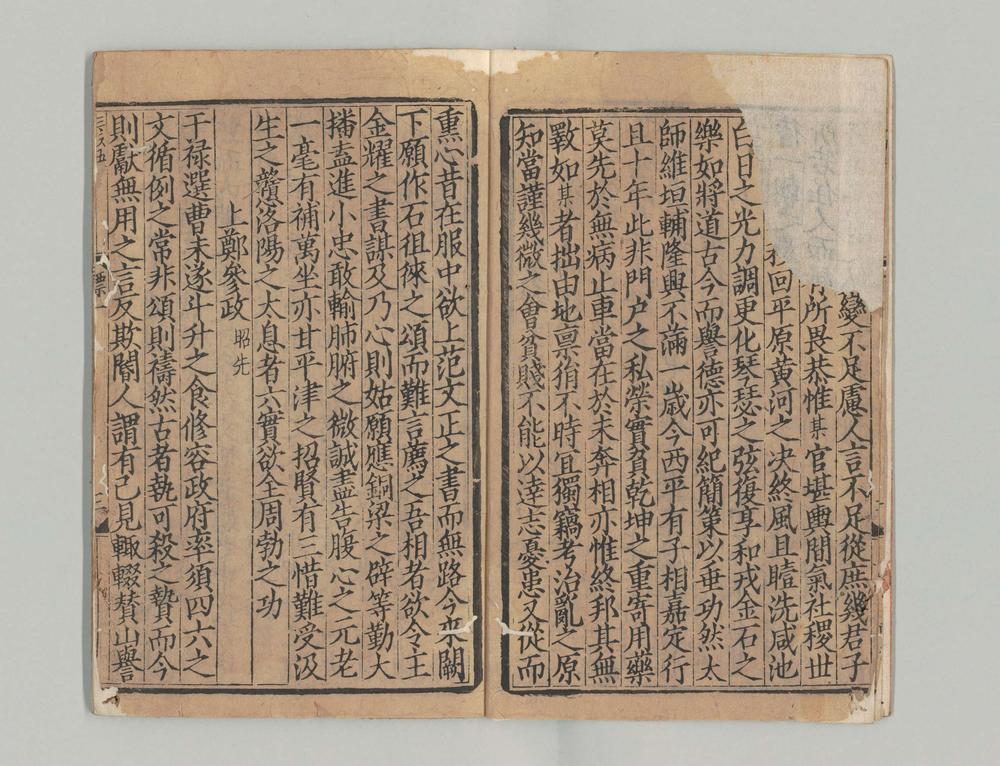 變不足慮人言不足從庶幾君子
所畏恭惟某官堪輿間氣社稷世
回平原黄河之决終風且曀洗咸池
白日之光力調更化琴瑟之弦復亨和戎金石之
樂如將道古今而譽德亦可紀簡策以垂功然太
師維垣輔隆興不滿一歳今西平有子相嘉定行
且十年此非門户之私榮實貧乾坤之重寄用藥
莫先於無病止車當在於未奔相亦惟終邦其無
斁如某者拙由地稟狷不時冝獨竊考治亂之原
知當謹幾微之會貧賤不能以逹志憂患又從而
熏心昔在服中欲上范文正之書而無路今至闕
下願作石徂徠之頌而難言薦之吾相者欲令主
金耀之書謀及乃心則姑願應銅梁之辟等勤大
播盍進小忠敢輸肺腑之微誠盡告腹心之元老
一毫有補萬坐亦甘平津之招賢有三惜難受汲
生之戇洛陽之太息者六實欲全周勃之功
上鄭參政 昭先
干禄選曹未遂斗升之食修容政府率須四六之
文循例之常非頌則禱然古者執可殺之贄而今
則獻無用之言反欺閽人謂有己見輙輟賛山譽